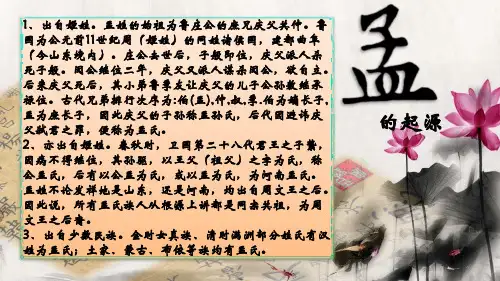 1、出自姬姓。孟姓的始祖为鲁庄公的庶兄庆父共仲。鲁
国为公元前11世纪周（姬姓）的同姓诸侯国，建都曲阜
（今山东境内）。庄公去世后，子般即位，庆父派人杀
死子般。闵公继位二年，庆父又派人谋杀闵公，欲自立。
后来庆父死后，其小弟季友让庆父的儿子公孙敖继承
禄位。古代兄弟排行次序为:伯(孟),仲,叔,季.伯为嫡长子,
孟为庶长子，因此庆父的子孙称孟孙氏，后代因避讳庆
父弑君之罪，便称为孟氏。
2、亦出自姬姓。春秋时，卫国第二十八代君王之子絷，
因病不得继位，其孙驱，以王父（祖父）之字为氏，称
公孟氏，后有以公孟为氏，或以孟为氏，为河南孟氏。
孟姓不论发祥地是山东，还是河南，均出自周文王之后。
因此说，所有孟氏族人从根源上讲都是同宗共祖，为周
文王之后裔。
3、出自少数民族。金时女真族、清时满洲部分姓氏有汉
姓为孟氏；土家、蒙古、布依等族均有孟氏。
孟
的起源